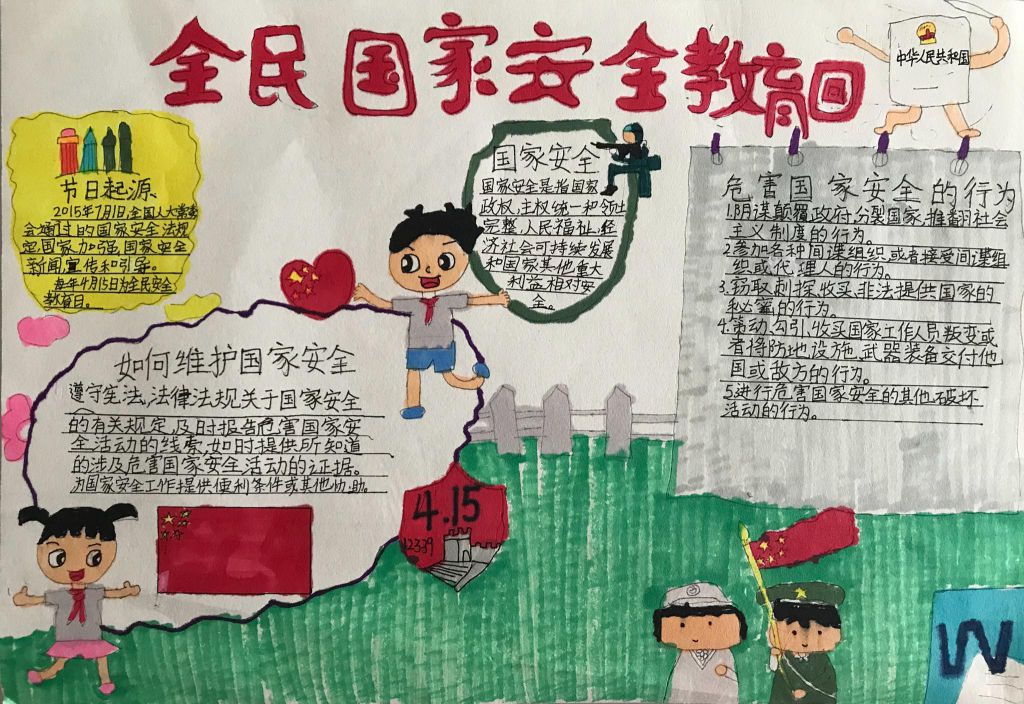 全民国家安全教育日
中华人民共和国
节日起源
2015年7月1日,全国人大常委
会通过的国家安全法规
定,国家加强国家安全
新闻,宣传和引导。
每年4月15日为全民安全
教育日。
国家安全
国家安全是指国家
政权,主权统一和领土
完整,人民福祉,经
济社会可持续发展
和国家其他重大
利益相对安
全。
危害国家安全的行为
1.阴谋颠覆,政府,分裂国家,推翻社会
主义制度的行为。
2.参加各种间谍组织,或者接受间谍组
织或代理人的行为。
3.窃取,刺探,收买,非法提供国家的
秘密的行为。
4.策动,勾引,收买国家工作人员叛变或
者将防地,设施,武器装备交付他
国或敌方的行为。
5.进行危害国家安全的其他破坏
活动的行为。
如何维护国家安全
遵守宪法,法律法规关于国家安全
的有关规定,及时报告危害国家安
全活动的线索,如时提供所知道
的涉及危害国家安全活动的证据。
为国家安全工作提供便利条件或其他协助。
4.15
12339